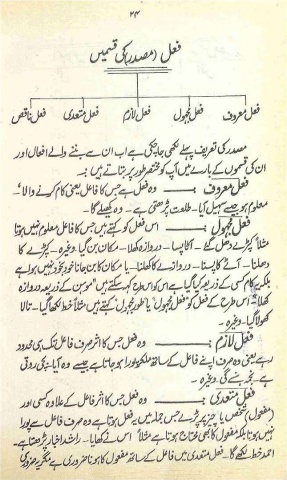 ۲۴
فعل (مصدر) کی قسمیں
فعل معروف فعل مجہول فعل لازم فعل متعدی فعل ناقص
مصدر کی تعریف پہلے لکھی جا چکی ہے اب ان سے بننے والے افعال اور
ان کی قسموں کے بارے میں آپ کو مختصر طور پر بتاتے ہیں:۔
فعل معروف: وہ فعل ہے جس کا فاعل یعنی کام کرنے والا
معلوم ہو جیسے سہیل آیا۔ طلعت پڑھتی ہے۔ وہ کھیلے گا۔
فعل مجہول: اس فعل کو کہتے ہیں جس کا فاعل معلوم نہیں ہوتا
مثلاً کپڑے دھل گئے۔ آٹا پسا۔ دروازہ کھلا۔ مکان بن گیا۔ وغیرہ۔ کپڑے کا
دھلنا۔ آٹے کا پسنا۔ دروازے کا کھلنا۔ یا مکان کا بن جانا خود بخود نہیں ہوا ہے
بلکہ یہ کام کسی کے ذریعہ کیا گیا ہے اس کو اس طرح کہہ سکتے ہیں "موہن کے ذریعہ دروازہ
کھلا" اس طرح کے فعل کو "فعل مجہول" یا "طور مجہول" کہتے ہیں مثلاً خط لکھا گیا۔ تالا
کھولا گیا۔ وغیرہ۔
فعل لازم: وہ فعل جس کا اثر صرف فاعل تک ہی محدود
رہے یعنی وہ صرف اپنے فاعل کے ساتھ ملکر پورا ہو جاتا ہے جیسے وہ آیا۔ بچی روتی
ہے۔ نجمہ بنے گی۔ وغیرہ۔
فعل متعدی: وہ فعل جس کا اثر فاعل کے علاوہ کسی اور
(مفعول) شخص یا چیز پر پڑے جس جملہ میں یہ فعل ہوتا ہے وہ صرف فاعل سے پورا
نہیں ہوتا بلکہ مفعول کا بھی محتاج ہوتا ہے مثلاً اس نے کھایا۔ راشد اخبار پڑھتا ہے۔
احمد خط لکھے گا۔ فعل متعدی میں فاعل کے ساتھ مفعول کا ہونا ضروری ہے مگر یہ ضروری